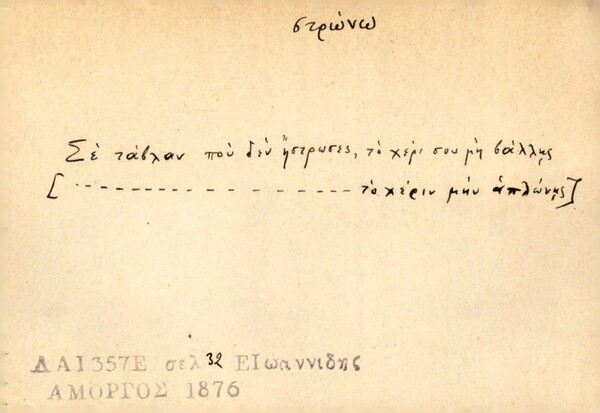 στρώνω
Σὲ τάβλαν ποὺ δὲν ἤστρωσες, τὸ χέρι σου μὴ βάλλῃς
[- - - - - - - - - - - - - - - - - τὸ χέριν μὴν ἁπλώνῃς]
ΛΑΙ357Ε σελ 32 ΕΙωαννιδης
ΑΜΟΡΓΟΣ 1876